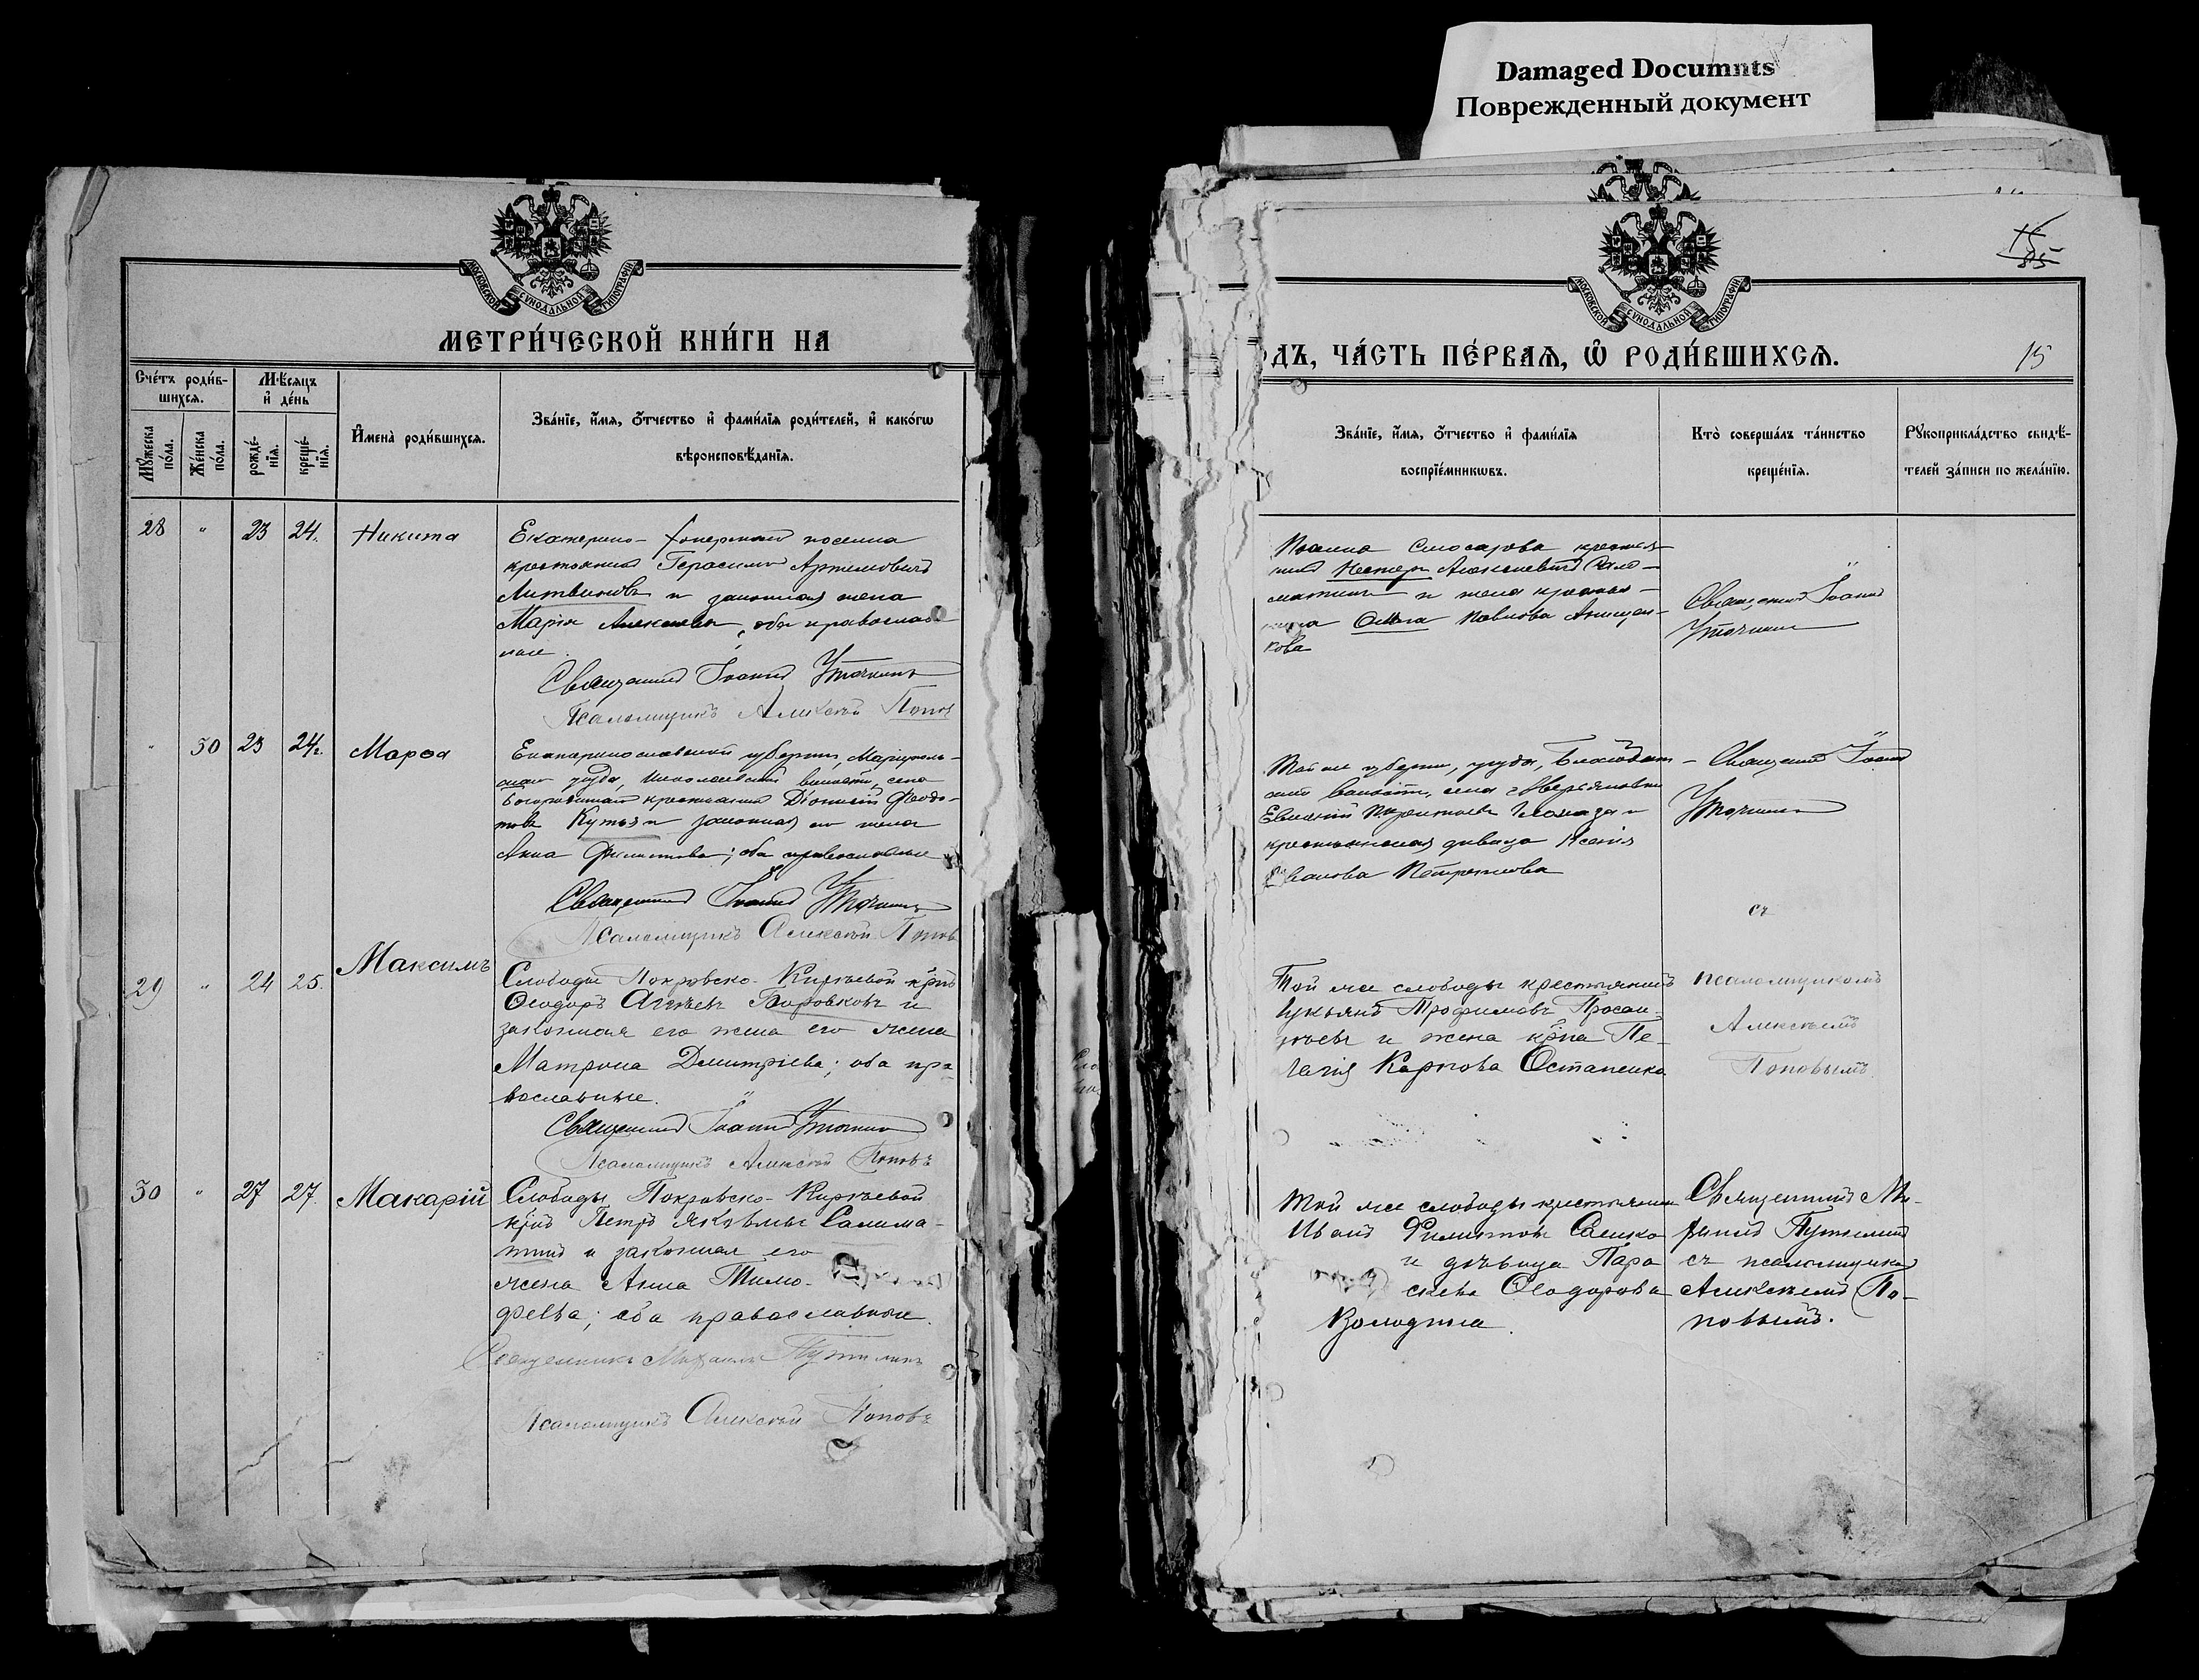 Damaged Documnts
Поврежденный документ
МОСКОВСКОЙ СѴНОДАЛЬНОЙ ТИПОГРАФІИ
МЕТРИ́ЧЕСКОЙ КНИ́ГИ НА
Сче́тъ роди́в-
шихсѧ.
Мѣ́сяцъ
и҆ де́нь
Мꙋ́жеска
по́ла.
Же́нска
по́ла.
рожде́-
нїѧ.
креще́-
нїѧ.
И҆мена̀ роди́вшихсѧ.
Зва́нїе, и҆́мѧ, ѻ҆́тчество и҆ фами́лїѧ роди́телей, и҆ како́гѡ
вѣроисповѣ́данїѧ.
28 " 23 24. Никита
Екатерино- поселка
крестьянинъ Герасимъ Артемовичъ
Литвиновъ и законная жена
Марія Алексеева, оба православ
ные.
Священникъ Іоаннъ Уточкинъ
Псаломщикъ Алексѣй Поповъ
" 30 23 24. Марѳа
Екатеринославской губерніи, Маріуполь-
скаго уѣзда, Николаевской волости, села
Богородицкаго крестьянинъ Діонисій Ѳеодо-
товъ и законная его жена
Анна Филиппова; оба православные
Священникъ Іоаннъ Уточкинъ
Псаломщикъ Алексѣй Поповъ
29 " 24 25. Максимъ
Слободы Покровско-Кирѣевой кр̃нъ
Ѳеодоръ Аггѣевъ Боровковъ и
законная его жена его жена
Матрона Димитріева; оба пра
вославные.
Священникъ Іоаннъ Уточкинъ
Псаломщикъ Алексѣй Поповъ
30 " 27 27. Макарій
Слободы Покровско-Кирѣевой
кр̃нъ Петръ Яковлевъ Салома-
тинъ и законная его
жена Анна Тимо-
феева; оба православные.
Священникъ Михаилъ Путилинъ
Псаломщикъ Алексѣй Поповъ
15
85
МОСКОВСКОЙ СѴНОДАЛЬНОЙ ТИПОГРАФІИ
ОДЪ, ЧА́СТЬ ПЕ́РВАѦ, Ѽ РОДИ́ВШИХСѦ.
15
Зва́нїе, и҆́мѧ, ѻ҆́тчество и҆ фами́лїѧ
воспрїе́мникѡвъ.
Кто̀ соверша́лъ та́инство
креще́нїѧ.
Рꙋкоприкла́дство свидѣ́-
телей за́писи по жела́нїю.
крестья
нинъ Нестеръ Алексѣевичъ Сало-
матинъ и жена крестья-
нина Ольга Павлова Анищен-
кова
Священникъ Іоаннъ
Уточкинъ
Той же губерніи, уѣзда, Благодат-
ской волости, села
Евгеній и
крестьянская дѣвица Ксенія
Иванова
Священникъ Іоаннъ
Уточкинъ
съ
Той же слободы крестьянинъ
Лукьянъ Трофимовъ
и жена кр̃на Пе-
лагія Карпова Остапенко
псаломщикомъ
Алексѣемъ
Поповымъ
Той же слободы крестьянинъ
Иванъ Филиповъ Саенко
и дѣвица Пара
скева Ѳеодорова
Колодина.
Священникъ Ми-
хаилъ Путилинъ
съ псаломщикомъ
Алексѣемъ По-
повымъ.